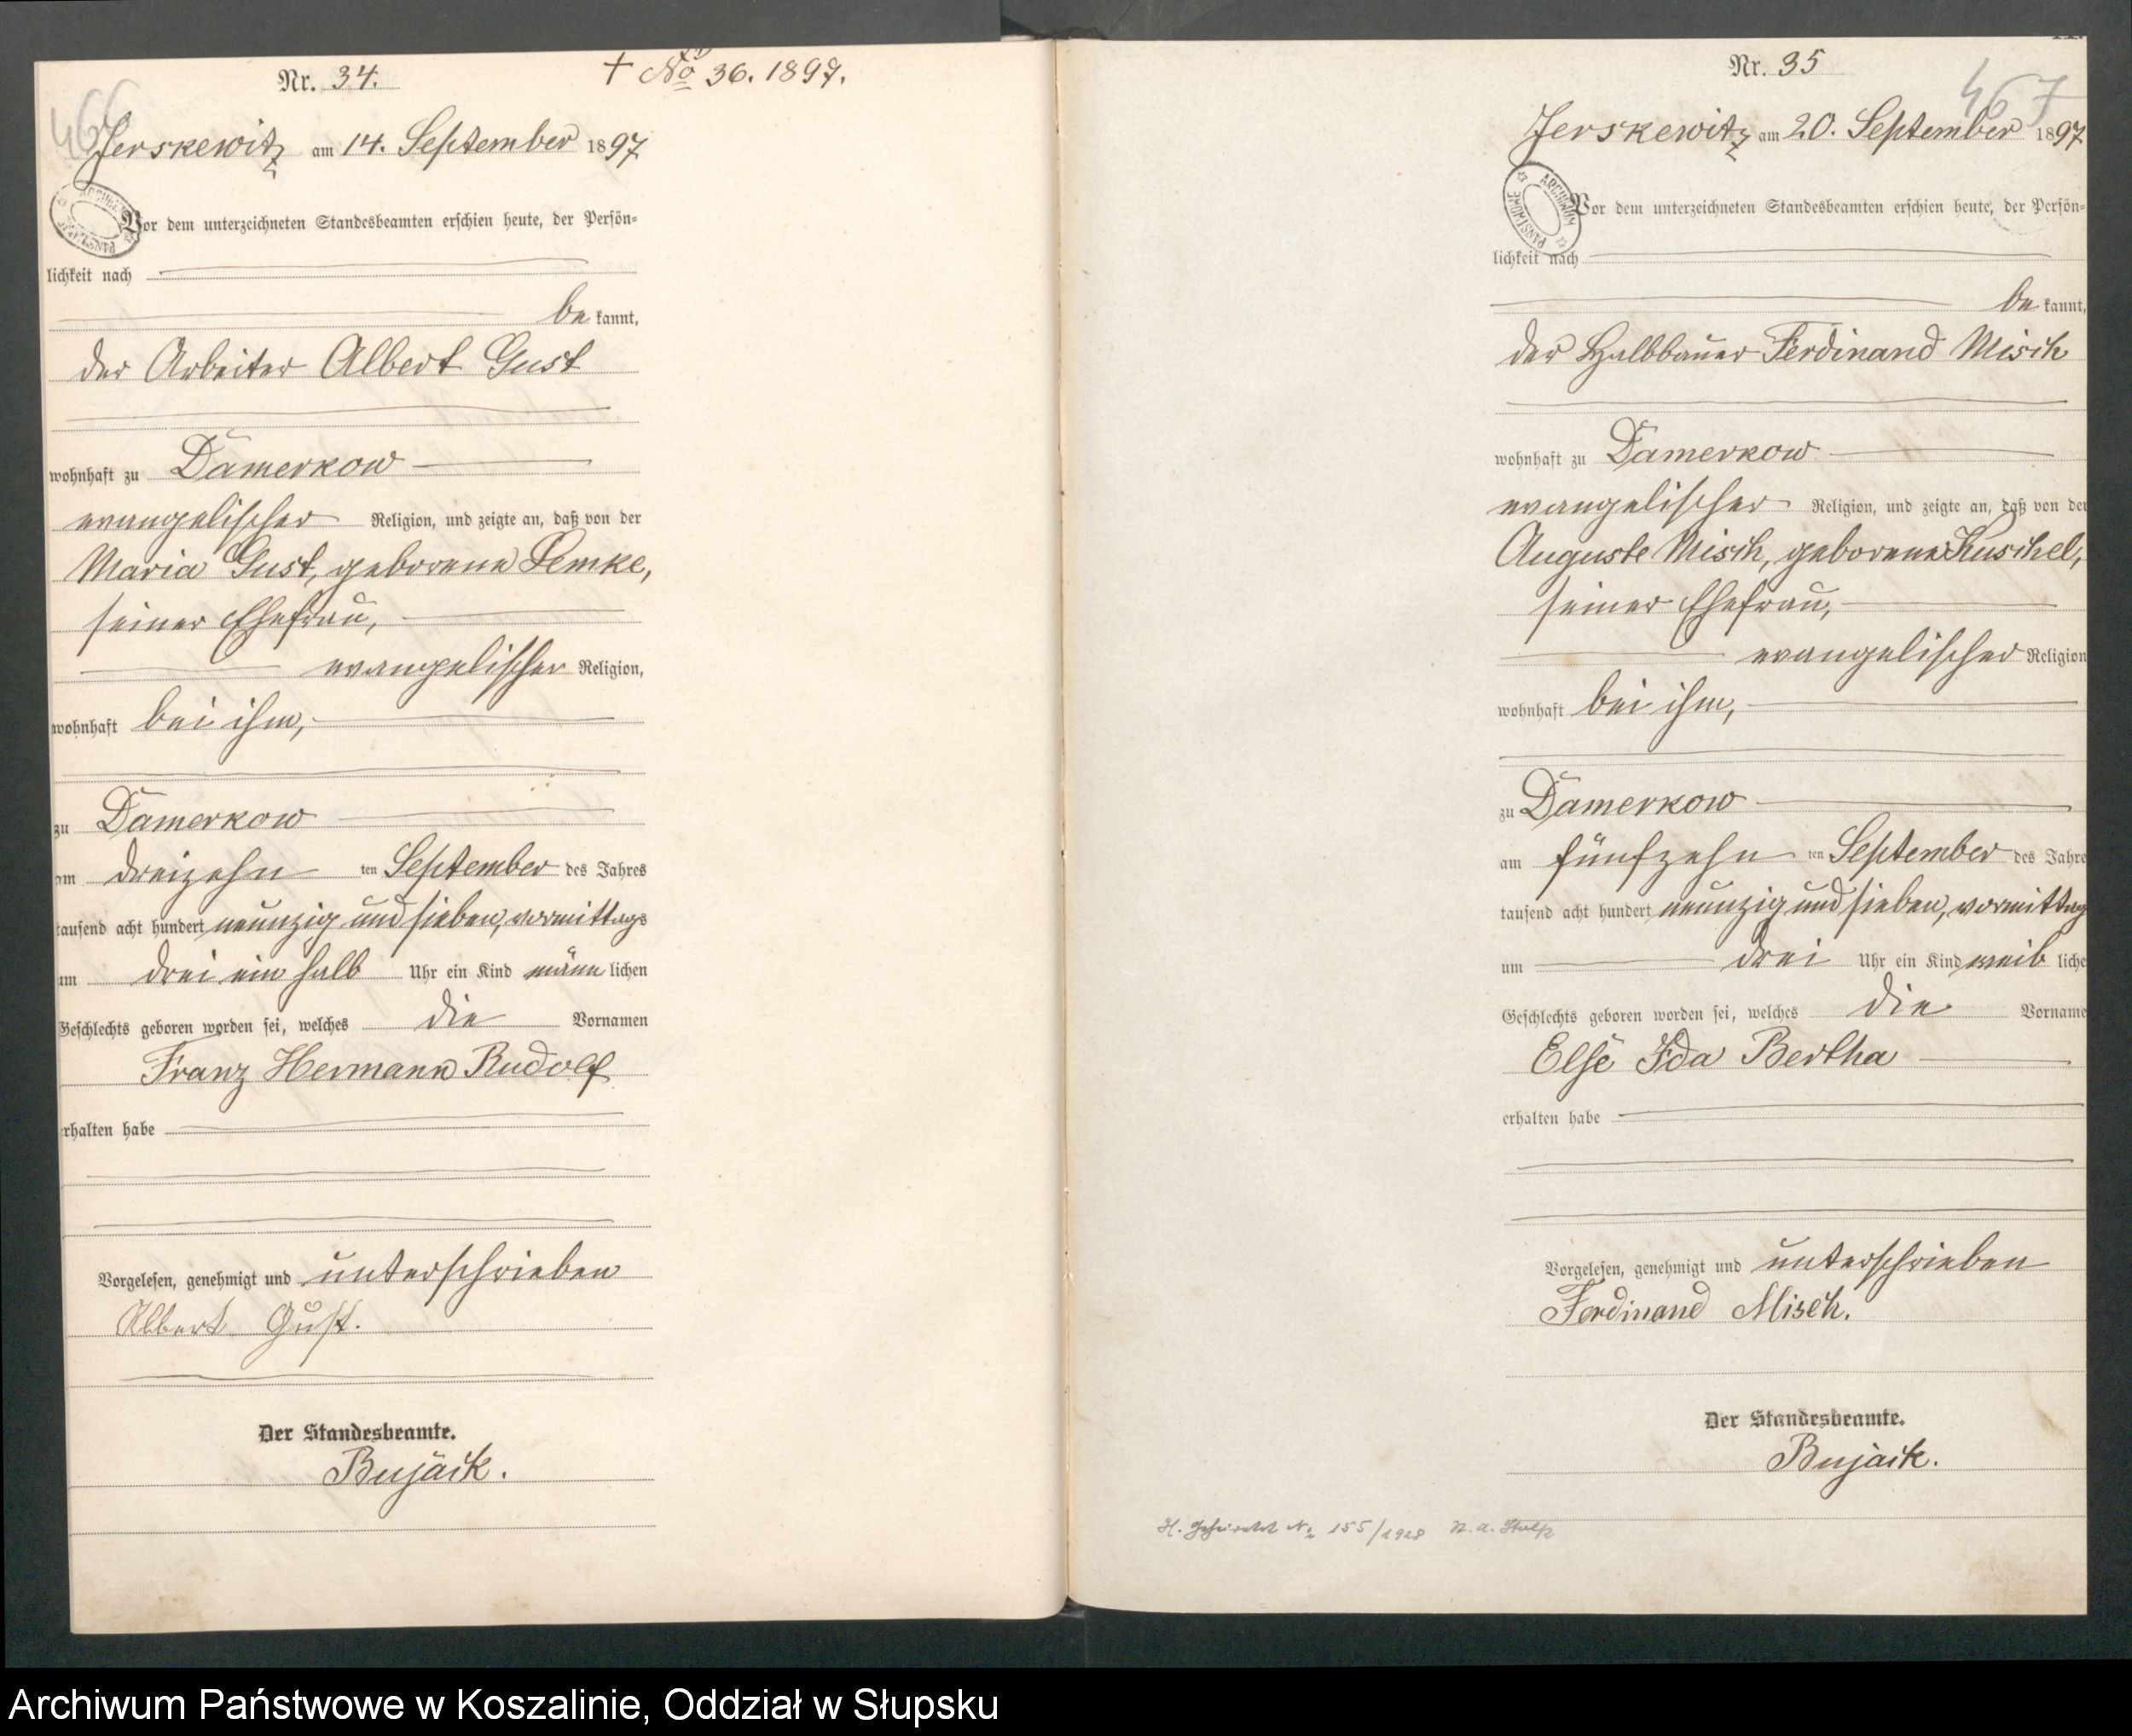 Nr. 34.
† No 36. 1897.
466
Jerskewitz am 14. September 1897
Vor dem unterzeichneten Standesbeamten erschien heute, der Persön=
lichkeit nach
be kannt,
der Arbeiter Albert Gust
wohnhaft zu Damerkow
evangelischer Religion, und zeigte an, daß von der
Maria Gust, geborene Lemke,
seiner Ehefrau,
evangelischer Religion,
wohnhaft bei ihm,
zu Damerkow
am dreizehn ten September des Jahres
tausend acht hundert neunzig und sieben, vormittags
um drei ein halb Uhr ein Kind männ lichen
Geschlechts geboren worden sei, welches die Vornamen
Franz Hermann Rudolf
erhalten habe
Vorgelesen, genehmigt und unterschrieben
Albert Gust.
Der Standesbeamte.
Bujack.
Nr. 35
467
Jerskewitz am 20. September 1897
ARCHIWUM PAŃSTWOWE
Vor dem unterzeichneten Standesbeamten erschien heute, der Persön=
lichkeit nach
be kannt,
der Halbbauer Ferdinand Misch
wohnhaft zu Damerkow
evangelischer Religion, und zeigte an, daß von der
Auguste Misch, geborene Kuschel,
seiner Ehefrau,
evangelischer Religion
wohnhaft bei ihm,
zu Damerkow
am fünfzehn ten September des Jahre
tausend acht hundert neunzig und sieben, vormittag
um drei Uhr ein Kind weib liche
Geschlechts geboren worden sei, welches die Vorname
Else Ida Bertha
erhalten habe
Vorgelesen, genehmigt und unterschrieben
Ferdinand Misch.
Der Standesbeamte.
Bujack.
Geheiratet No 155/1928
Archiwum Państwowe w Koszalinie, Oddział w Słupsku